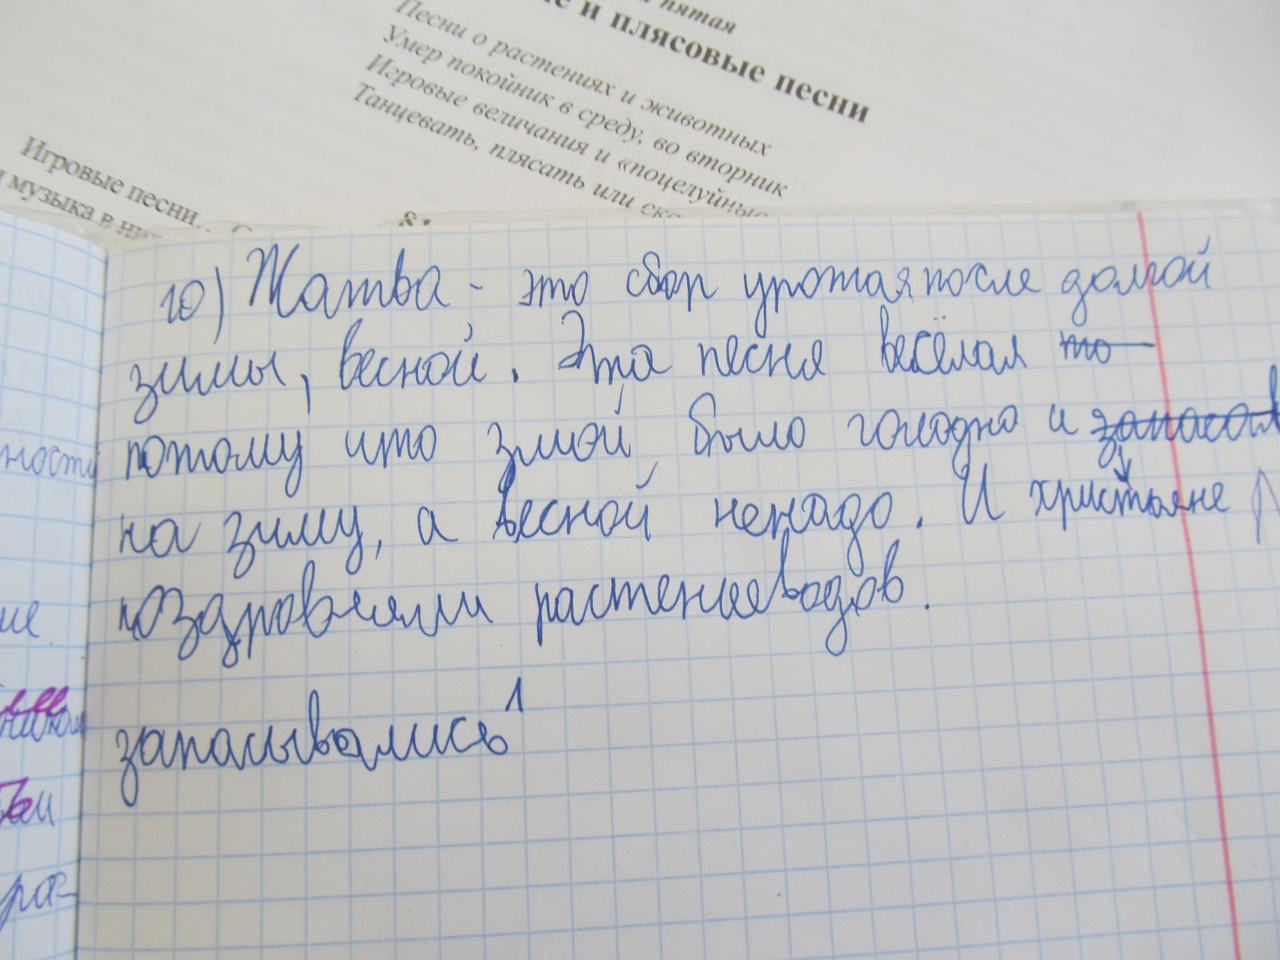 пятая
е и плясовые песни
Песни о растениях и животных
Умер покойник в среду, во вторник
Игровые величания и «поцелуйные
Танцевать, плясать или ска
Игровые песни...
и музыка в ни
81
10) Жатва - это сбор урожая после долгой
зимы, весной. Эта песня весёлая то
потому што змой было голодно и запасал
на зиму, а весной ненадо. И христьяне
поздровляли растениеводов.
запасывались 1
ности
ие
ра-